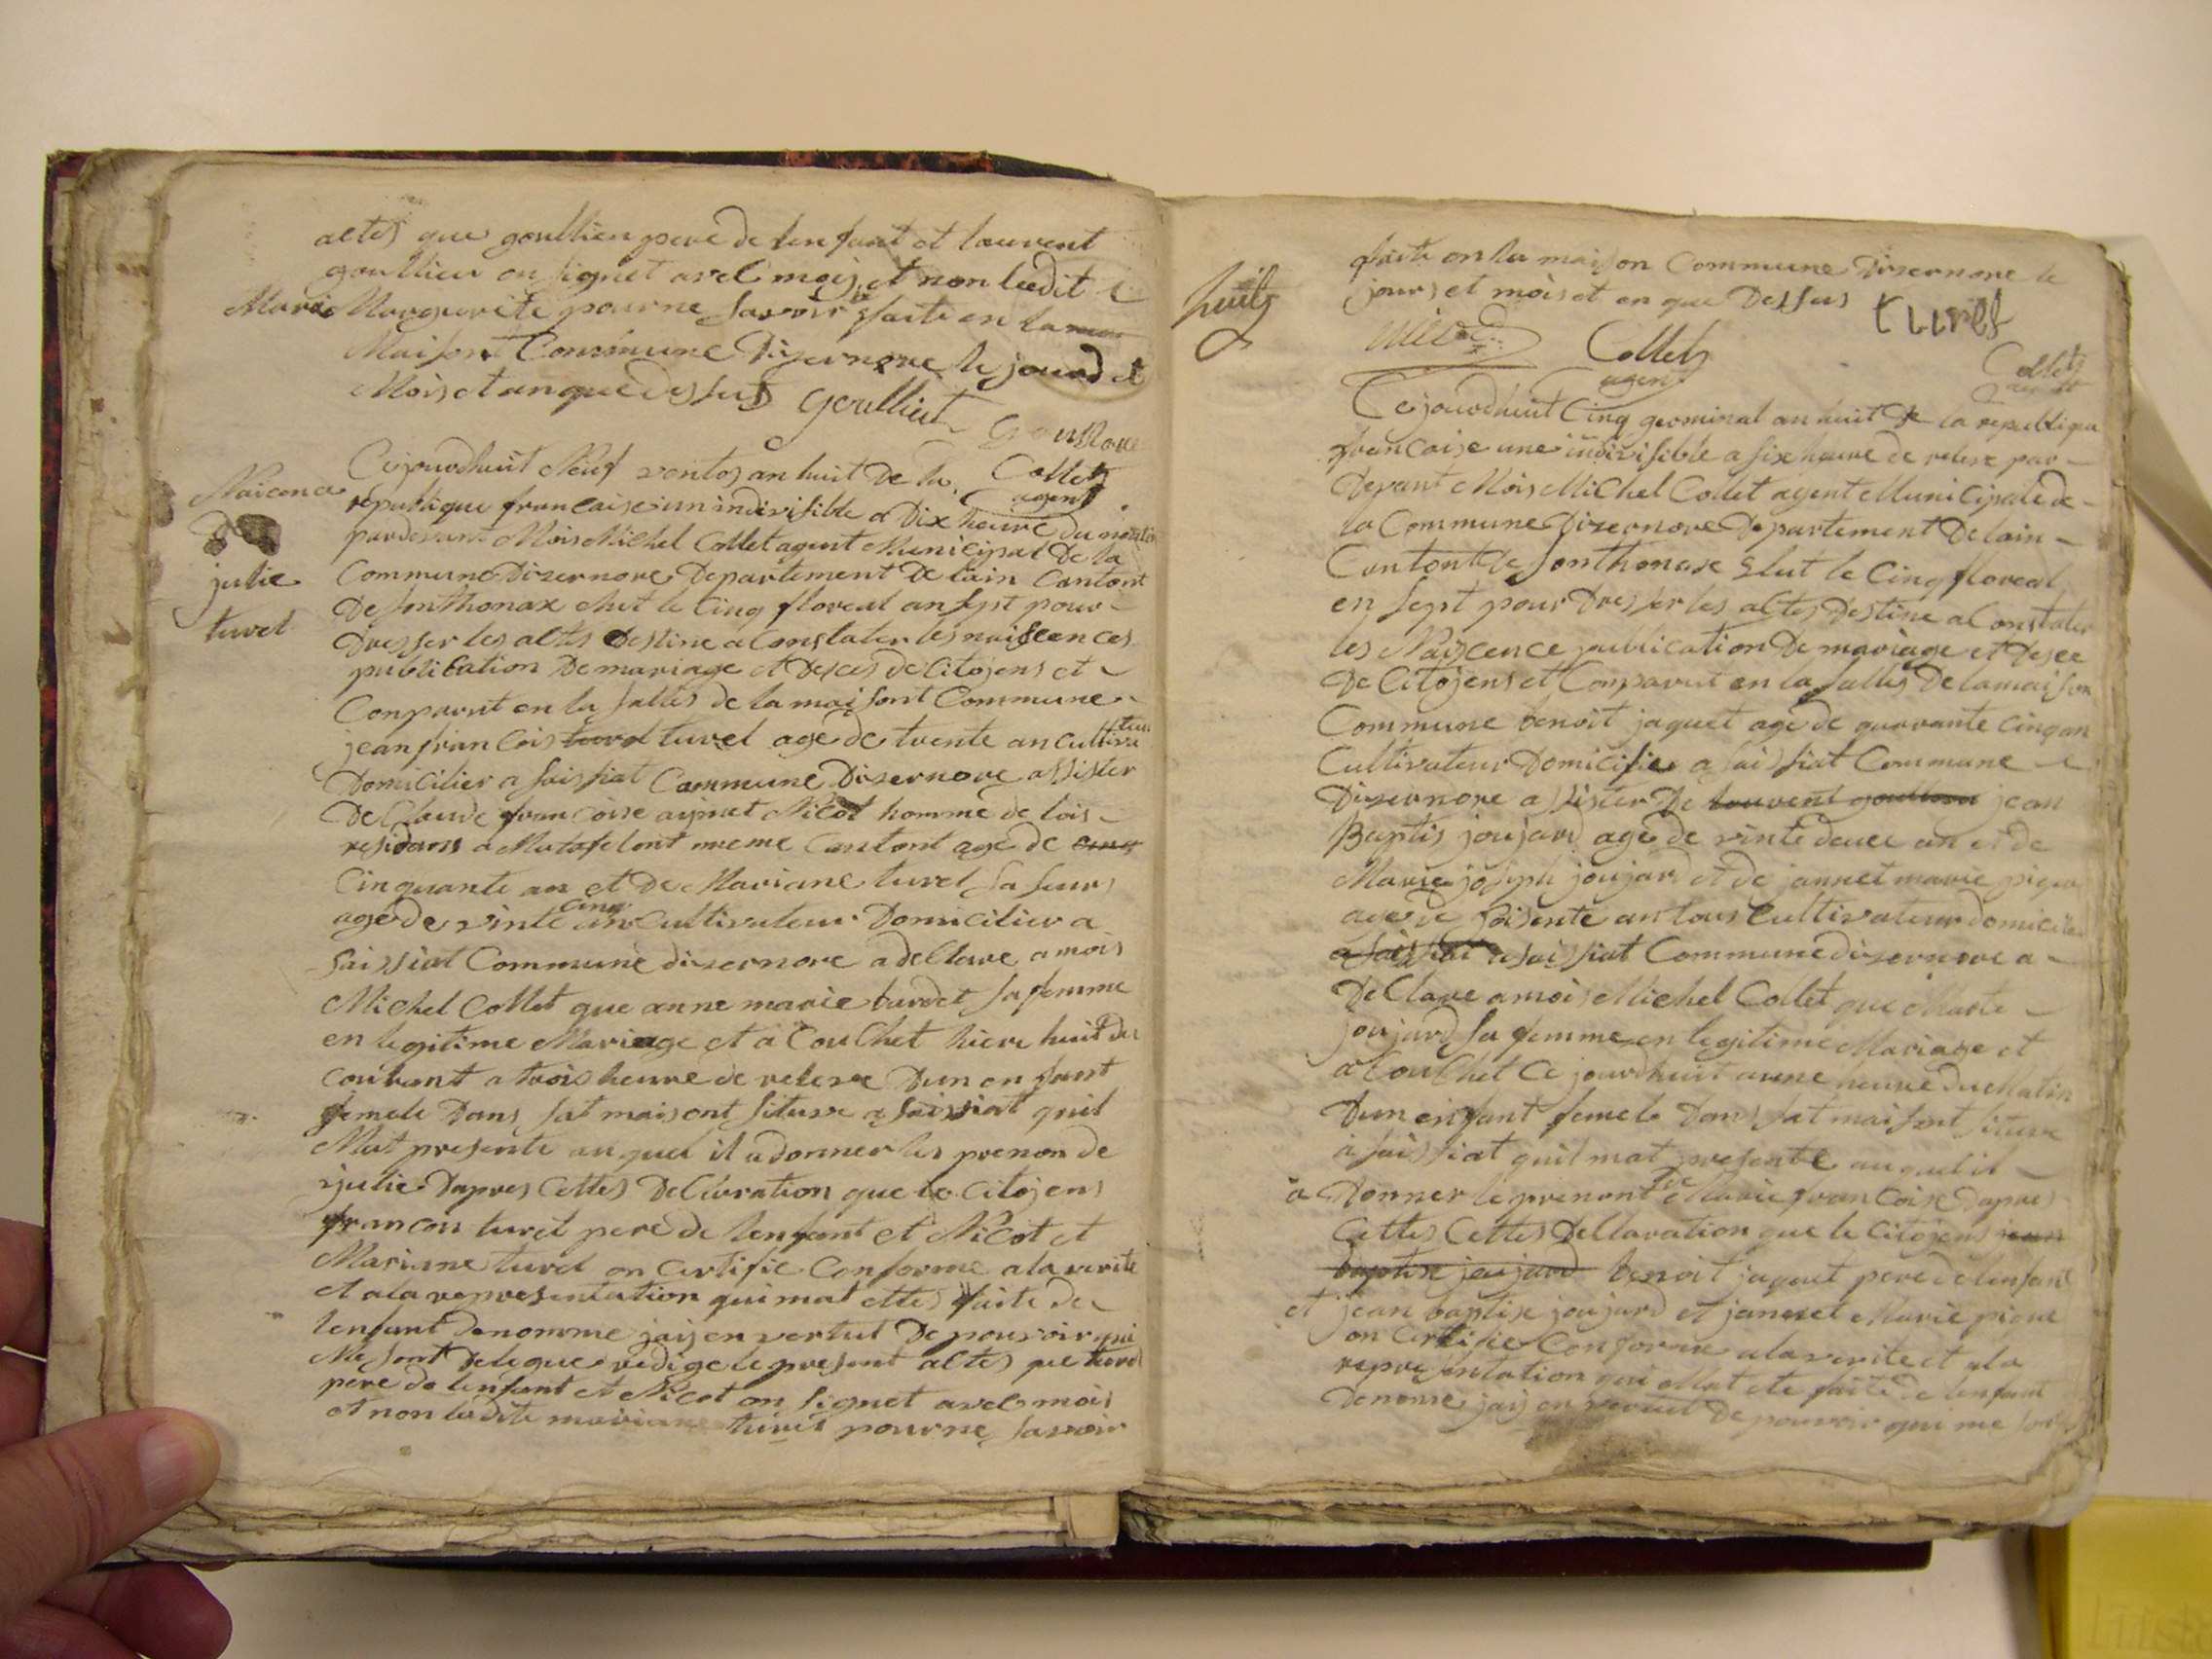 actes que goullien pere de lenfant et laurent
goullien on signet avel mois et non ledit
Marie Marguerite pour ne savoir faite en la
Maisont Commune Dizernore le jourd et
Mois et an que dessus goullieut
Collet
agent
Naicence
De
julie
turel
Cejourdhuit Neuf ventos an huit De la
republique francaise un indivisible a Dix heure du matin
pardevant Mois Michel Collet agent Municipal De la
Commune Dizernore Departement De lain Cantont
De sonthonax elut le Cinq floreal an sept pour
Dresser les altes Destine a Constater les naiscences
publication De mariage et Deces de Citojens et
Conparut en la salles de la maisont Commune
jean francois turel turel age de trente an cultivateur
Domicilier a saissiat Commune Dizernore assister
De Claude francoise aymet Nicot homme de lois
residans a Matafelont meme Cantont age de cinq
Cinquante an et De Mariane turel sa seurs
age de vinte cinq an Cultivateur Domicilier a
saissiat Commune dizernore a declare a mois
Michel Collet que anne marie burdet sa femme
en legitime Mariage et a Couchet hiere huit du
Courant a trois heure de releve Dun enfant
femele Dans sat maisont situee a saissiat quil
Mat presente auquel il a donner les prenon de
julie Dapres Cettes Declaration que le Citojens
francois turel pere de lenfant et Nicot et
Mariane turel on Certifie Conforme a la verite
et a la representation qui mat ettes faite de
lenfant denomme jaij en vertut De pouvoir qui
Me sont Delegue redige le present altes que turel
pere de lenfant et Nicot on signet avel mois
et non ledite mariane turel pour ne savoir
huit
faite en la maison Commune Dizernore le
jours et mois et en que Dessus turel
Nicod Collet
agent
Collet
agent
Cejourdhuit Cinq germinal an huit De la republique
francaise une indivisible a six heure de releve par
Devant Mois Michel Collet agent Municipale de
la Commune Dizernore Departement De lain
Cantont de sonthonax Elut le Cinq floreal
en sept pour Dresser les altes Destine a Constater
les Naiscence publication De mariage et Decee
De Citojens et Comparut en la salles De la maison
Commune benoit jaquet age de quarante cinq an
Cultivateur Domicilie a saissiat Commune
Dizernore assister De laurent goullien jean
Baptis joujard age de vinte deuee an et de
Marie joseph joujard et de jannet marie pique
age de soisente an tous Cultivateur domicilie
a saissiat a saissiat Commune dizernore a
Declare a mois Michel Collet que Marie
joujard sa femme en legitime Mariage et
a Couchet Ce jourdhuit a une heure du Matin
Dun enfant femele Dans sat maisont situee
a saissiat quil mat presente auquel il
a Donner le prenont de Marie francoise Dapres
Cettes Cettes Declaration que le Citojens jean
baptise joujard benoit jaquet pere de lenfant
et jean baptise joujard et jannet Marie pique
on Certifie Conforme a la verite et a la
representation qui Mat ete faite de lenfant
Denome jaij en vertut De pouvoir qui me sont